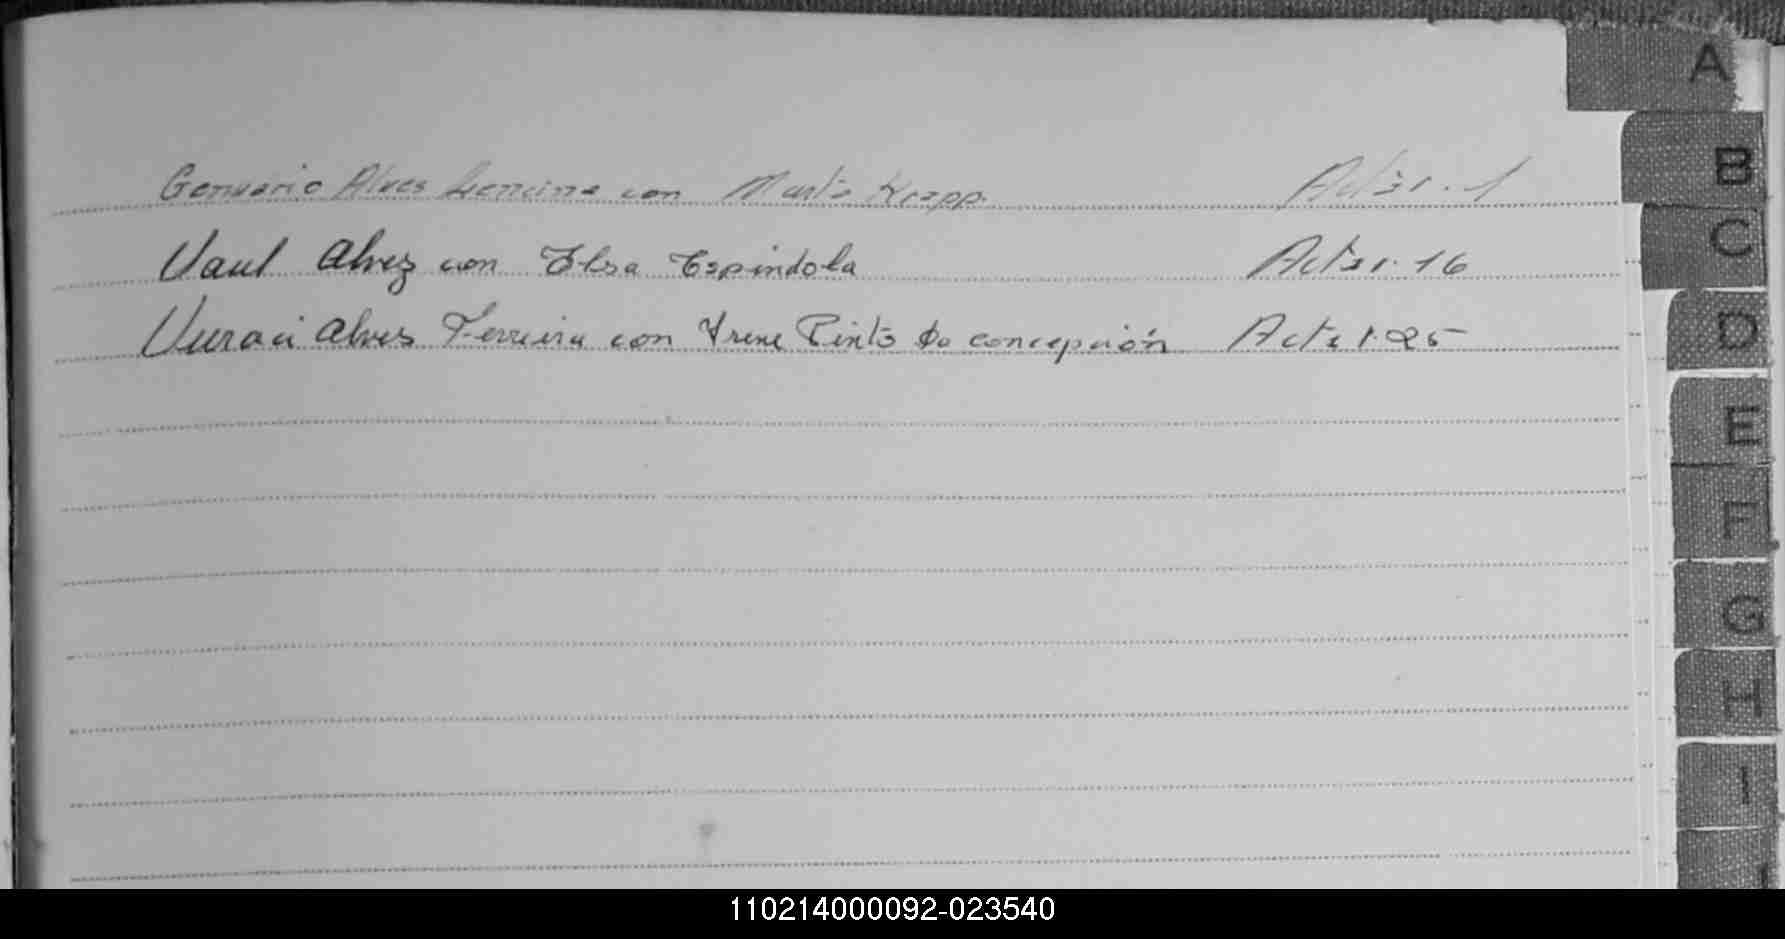 Genuario Alves Lencina con Marta Krapp. Acta 1. 1
Vaul Alvez con Elsa Espindola Acta 1. 16
Vuraci Alves Ferreira con Irene Pinto Da concepción Acta 1. 25
A
B
C
D
E
F
G
H
I
110214000092-023540